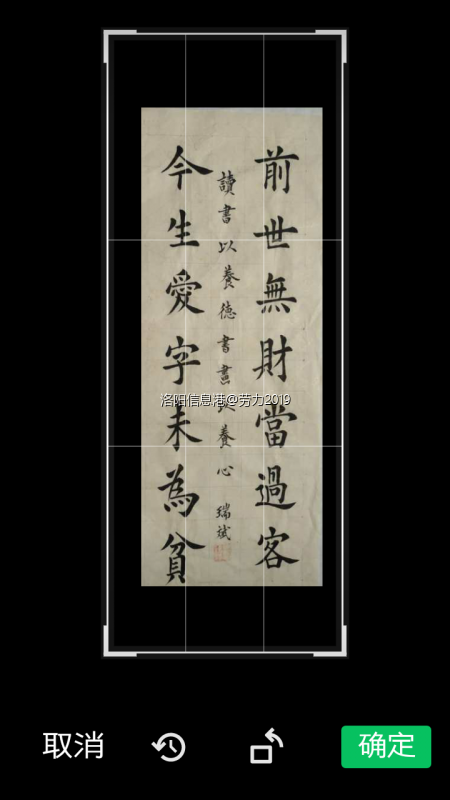 前世無財當過客
讀書以養德書畫以養心 瑞斌
今生愛字未為貧
洛阳信息港@劳力2019
取消
确定